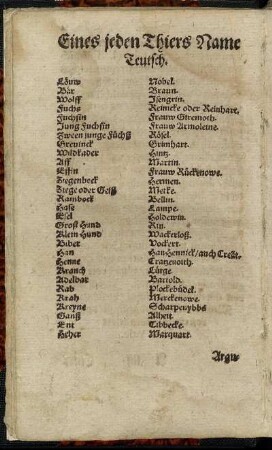 Eines jeden Thiers Name
Teutsch.
Löuw Nobel.
Bär Braun.
Wolff Isengrin.
Fuchs Reineke oder Reinhart.
Fuchsin Frauw Giremoth.
Jung Fuchsin Frauw Armoleine.
Zween junge Füchß Rösel
Grevinck Grimhart.
Wildkader Hintz.
Aff Martin.
Effin Frauw Rückenowe.
Ziegenbock Hermen.
Ziege oder Geiß Metke.
Rambock Bellin.
Hase Lampe.
Esel Boldewin.
Groß Hund Rin.
Klein Hund Wackerloß.
Biber Bockert.
Han Han Hennick/auch Creßt.
Henne Cratzevoith.
Kranch Lütge.
Adelbar Bartold.
Rab Plockebüdel.
Krah Merckenowe.
Kreyne Scharpenybbe
Ganß Alheit.
Ent Tibbecke.
Heher Marquart.
Argu-